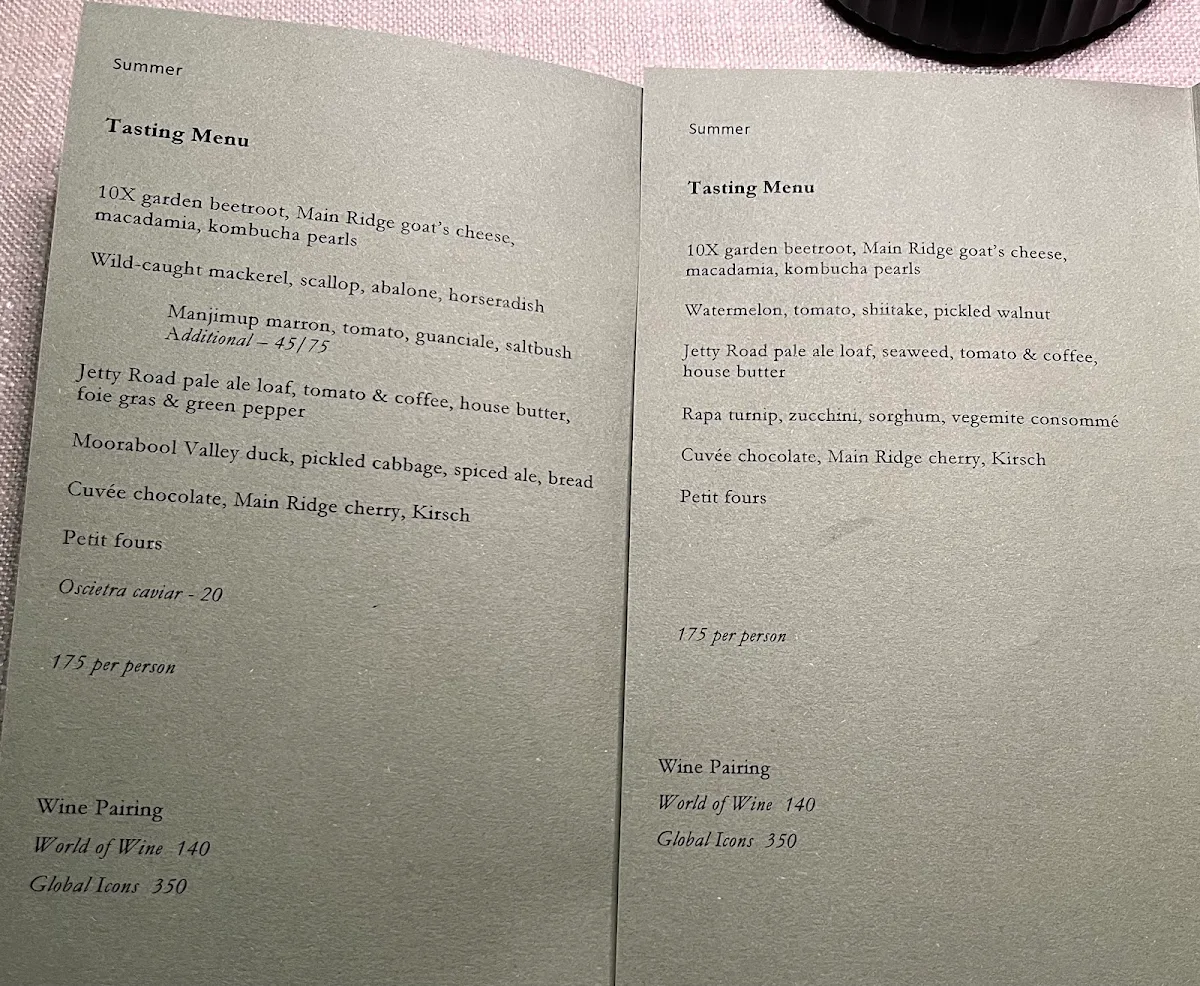 Summer
Tasting Menu
10X garden beetroot, Main Ridge goat's cheese,
macadamia, kombucha pearls
Wild-caught mackerel, scallop, abalone, horseradish
Manjimup marron, tomato, guanciale, saltbush
Additional – 45/75
Jetty Road pale ale loaf, tomato & coffee, house butter,
foie gras & green pepper
Moorabool Valley duck, pickled cabbage, spiced ale, bread
Cuvée chocolate, Main Ridge cherry, Kirsch
Petit fours
Oscietra caviar - 20
175 per person
Wine Pairing
World of Wine 140
Global Icons 350
Summer
Tasting Menu
10X garden beetroot, Main Ridge goat's cheese,
macadamia, kombucha pearls
Watermelon, tomato, shiitake, pickled walnut
Jetty Road pale ale loaf, seaweed, tomato & coffee,
house butter
Rapa turnip, zucchini, sorghum, vegemite consommé
Cuvée chocolate, Main Ridge cherry, Kirsch
Petit fours
175 per person
Wine Pairing
World of Wine 140
Global Icons 350